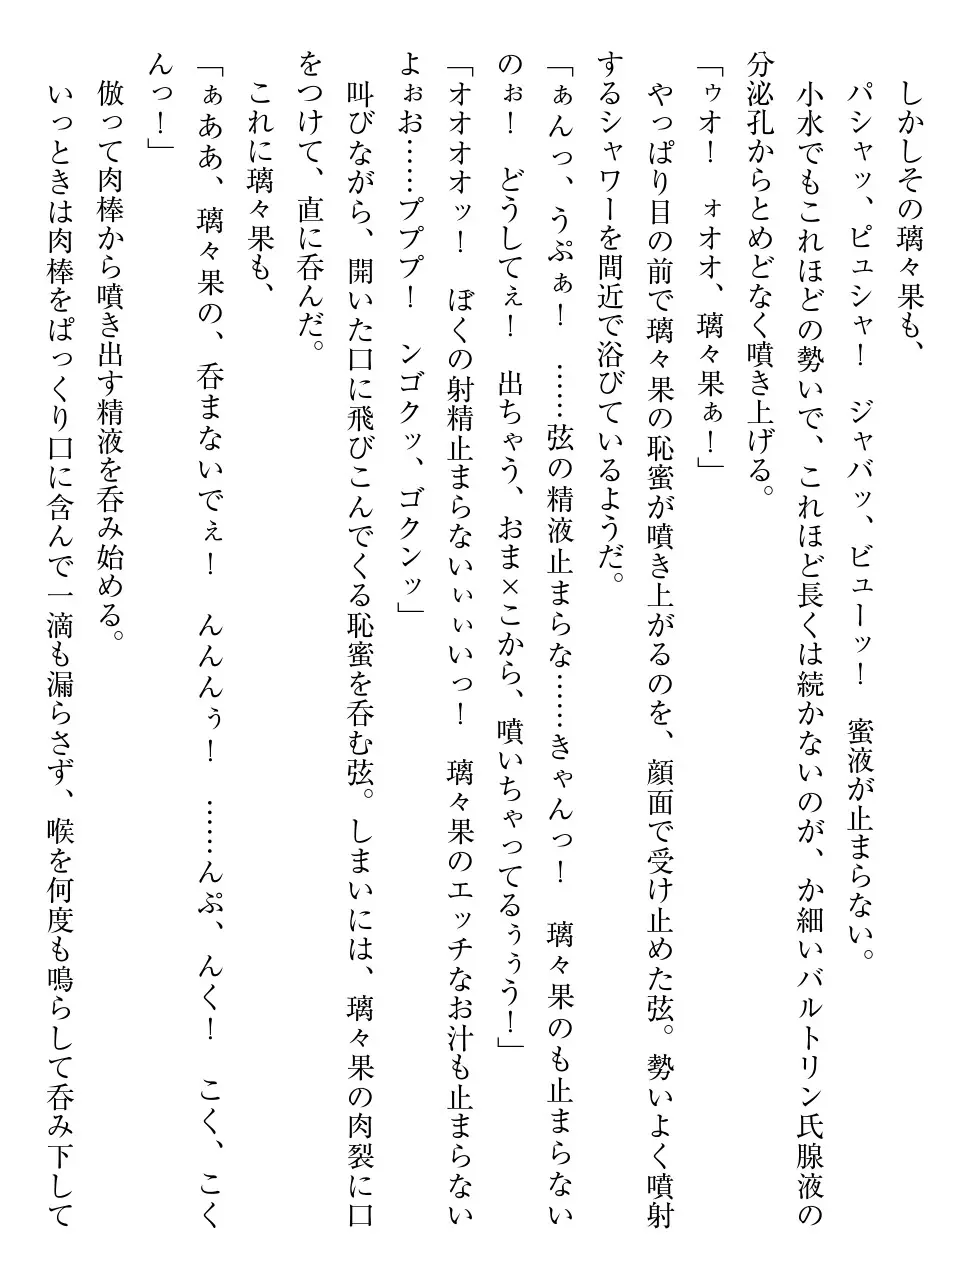 しかしその璃々果も、
パシャッ、ピュシャ！　ジャバッ、ビューッ！　蜜液が止まらない。
小水でもこれほどの勢いで、これほど長くは続かないのが、か細いバルトリン氏腺液の
分泌孔からとめどなく噴き上げる。
「ゥオ！　ォオオ、璃々果ぁ！」
やっぱり目の前で璃々果の恥蜜が噴き上がるのを、顔面で受け止めた弦。勢いよく噴射
するシャワーを間近で浴びているようだ。
「ぁんっ、うぷぁ！　……弦の精液止まらな……きゃんっ！　璃々果のも止まらない
のぉ！　どうしてぇ！　出ちゃう、おま×こから、噴いちゃってるぅぅう！」
「オオオオッ！　ぼくの射精止まらないぃぃいっ！　璃々果のエッチなお汁も止まらない
よぉお……ププププ！　ンゴクッ、ゴクンッ」
叫びながら、開いた口に飛びこんでくる恥蜜を呑む弦。しまいには、璃々果の肉裂に口
をつけて、直に呑んだ。
これに璃々果も、
「ぁああ、璃々果の、呑まないでぇ！　んんんぅ！　……んぷ、んく！　こく、こく
んっ！」
倣って肉棒から噴き出す精液を呑み始める。
いっときは肉棒をぱっくり口に含んで一滴も漏らさず、喉を何度も鳴らして呑み下して